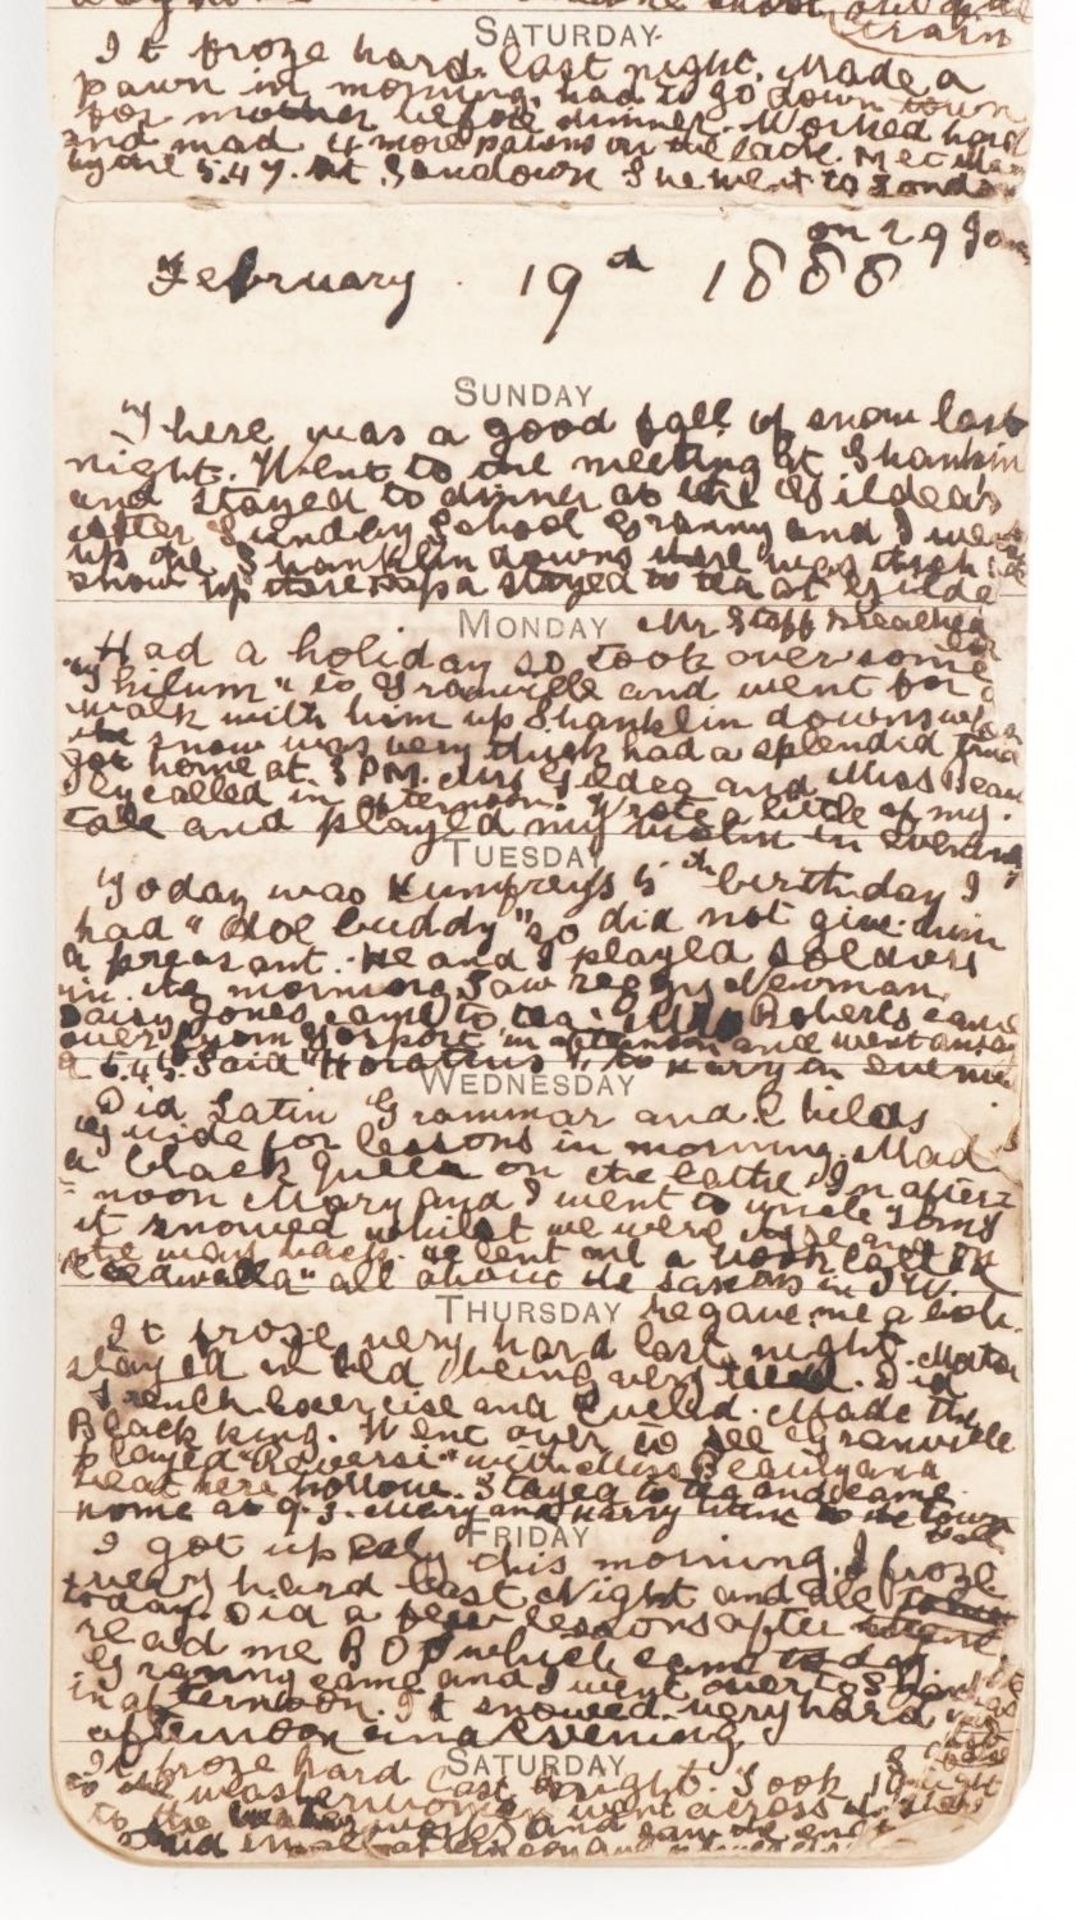 train
SATURDAY
It froze hard last night. Made a
pawn in morning, had to go down town
for mother before dinner. Worked hard
and mad 4 more pawns on the lathe. Met
by the 5.47. at Sandown She went to
on 29 Jan
February 19th 1888
SUNDAY
There was a good fall of snow last
night. Went to the meeting at Shanklin
and stayed to dinner at the Gildea's
after Sunday School Granny and I went
up the Shanklin downs there was thick
snow up there papa stayed to tea at Gildea
MONDAY Mr Stopp preached
Had a holiday so took over some
"Thilum" to Granville and went for a
walk with him up Shanklin downs
the snow was very thick had a splendid time
got home at 3 PM. Mrs Gildea and Miss Beau
ly called in afternoon. Wrote a little of my
tale and played my violin in evening
TUESDAY
Today was Humphreys 5th birthday I
had "Doe buddy" so did not give him
a preasant. He and I played soldiers
in the morning Saw reggy Newman.
Daisy Jones came to tea. Roberts came
over from Gosport in afternoon and went
5.45. Said "Horatius" to Harry in evening
WEDNESDAY
Did Latin Grammar and Childs
Guide for lessons in morning. Mad
a black queen on the lathe In after=
=noon Mary and I went to uncle Toms
it snowed whilst we were there and on
the way back. he lent me a book called
"Ceadwalla" all about the saxons in IW.
THURSDAY he gave me a
It froze very hard last night. Mater
stayed in bed being very. Did
French Exercise and Euclid. Made the
Black king. Went over to see Granville
played "Reversi" with Miss Beauly and
beat here hollow. Stayed to tea and came
home at 9.3. Mary and Harry went to the town
hall
FRIDAY
I got up ealy this morning. I froze
very hard last Night and all
today. Did a few lessons after
read me BOP which came to day
Granny came and I went over to
in afternoon. It snowed very hard
afternoon and Evening
SATURDAY
It froze hard last night. Took
to the washerwoman went across
to the and saw the